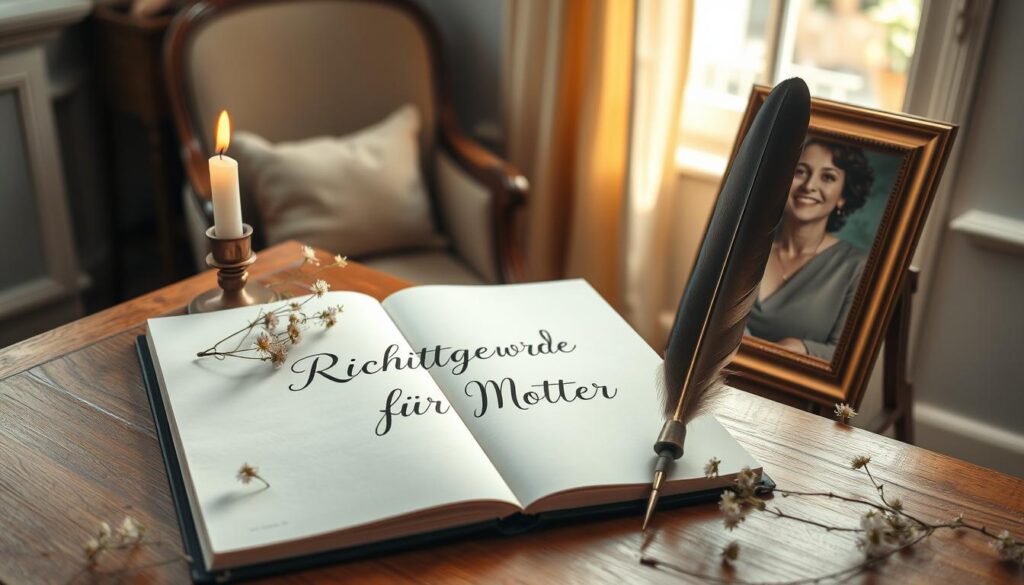 Richittgewrde
für Motter